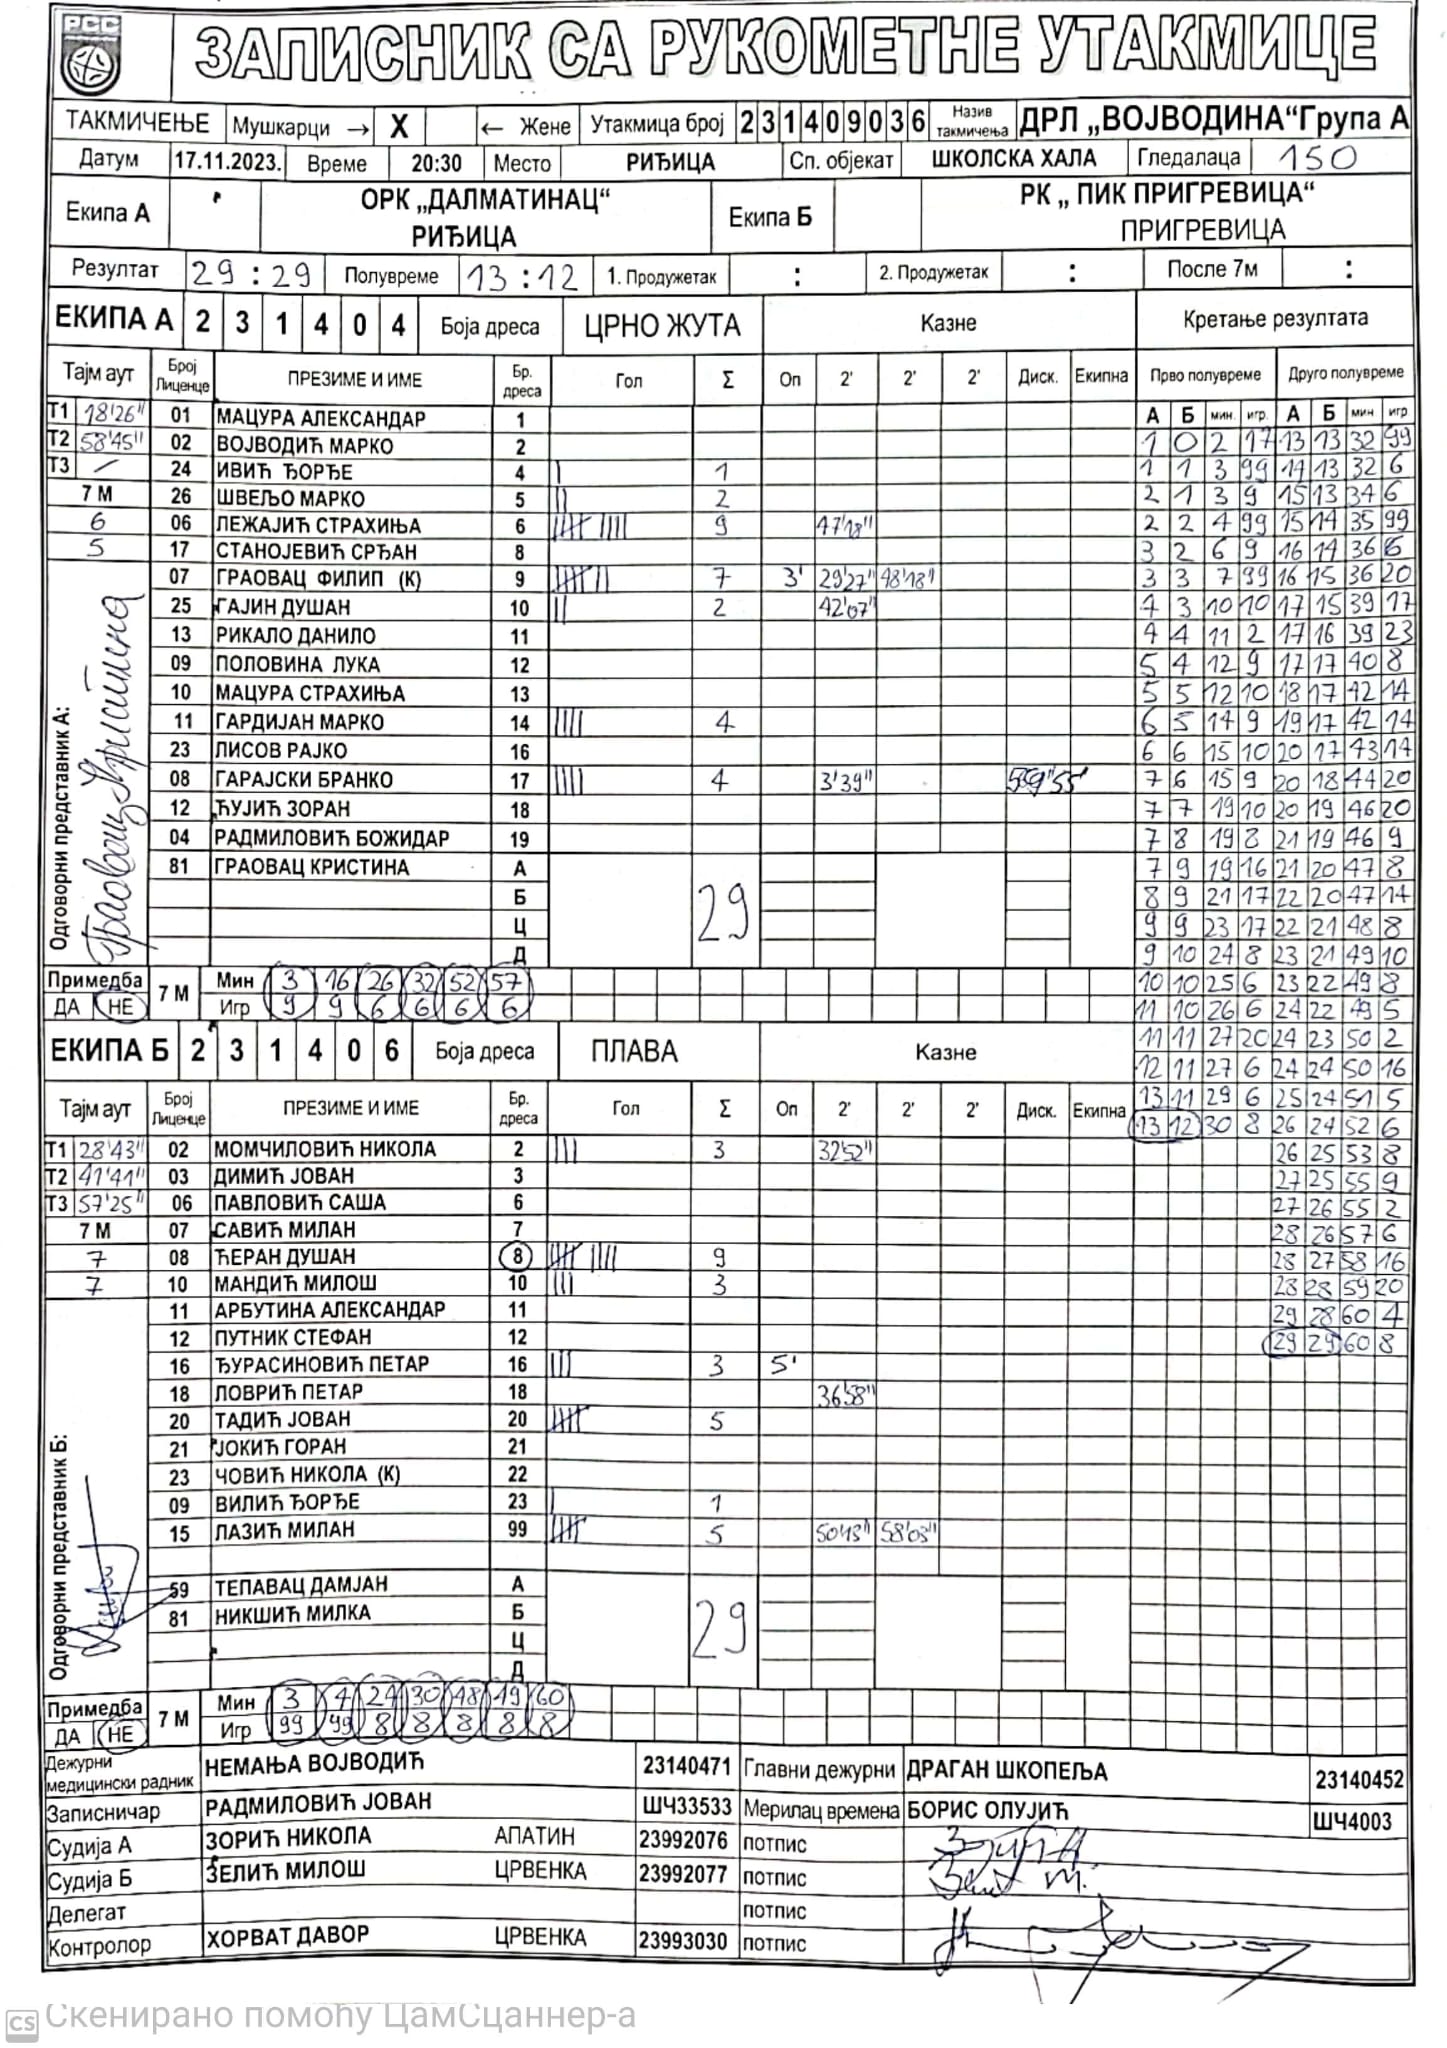 РСС
ЗАПИСНИК СА РУКОМЕТНЕ УТАКМИЦЕ
ТАКМИЧЕЊЕ Мушкарци → X ← Жене Утакмица број 2 3 1 4 0 9 0 3 6 Назив такмичења ДРЛ „ВОЈВОДИНА“Група А
Датум 17.11.2023. Време 20:30 Место РИЂИЦА Сп. објекат ШКОЛСКА ХАЛА Гледалаца 150
Екипа А ОРК „ДАЛМАТИНАЦ“ РИЂИЦА Екипа Б РК „ ПИК ПРИГРЕВИЦА“ ПРИГРЕВИЦА
Резултат 29 : 29 Полувреме 13 : 12 1. Продужетак : 2. Продужетак : После 7м :
ЕКИПА А 2 3 1 4 0 4 Боја дреса ЦРНО ЖУТА Казне Кретање резултата
Тајм аут Број Лиценце ПРЕЗИМЕ И ИМЕ Бр. дреса Гол Σ Оп 2' 2' 2' Диск. Екипна Прво полувреме Друго полувреме
T1 18'26" 01 МАЦУРА АЛЕКСАНДАР 1 А Б мин. игр. А Б мин игр
T2 58'45" 02 ВОЈВОДИЋ МАРКО 2 1 0 2 17 13 13 32 99
T3 / 24 ИВИЋ ЂОРЂЕ 4 | 1 1 1 3 99 14 13 32 6
7 М 26 ШВЕЉО МАРКО 5 || 2 2 1 3 9 15 13 34 6
6 06 ЛЕЖАЈИЋ СТРАХИЊА 6 9 47'18" 2 2 4 99 15 14 35 99
5 17 СТАНОЈЕВИЋ СРЂАН 8 3 2 6 9 16 14 36 6
07 ГРАОВАЦ ФИЛИП (К) 9 7 3' 29'27" 48'18" 3 3 7 99 16 15 36 20
25 ГАЈИН ДУШАН 10 || 2 42'07" 4 3 10 10 17 15 39 17
13 РИКАЛО ДАНИЛО 11 4 4 11 2 17 16 39 23
09 ПОЛОВИНА ЛУКА 12 5 4 12 9 17 17 40 8
10 МАЦУРА СТРАХИЊА 13 5 5 12 10 18 17 42 14
11 ГАРДИЈАН МАРКО 14 |||| 4 6 5 14 9 19 17 42 14
23 ЛИСОВ РАЈКО 16 6 6 15 10 20 17 43 14
08 ГАРАЈСКИ БРАНКО 17 |||| 4 3'39" 7 6 15 9 20 18 44 20
12 ЋУЈИЋ ЗОРАН 18 7 7 19 10 20 19 46 20
04 РАДМИЛОВИЋ БОЖИДАР 19 7 8 19 8 21 19 46 9
81 ГРАОВАЦ КРИСТИНА А 7 9 19 16 21 20 47 8
Б 29 8 9 21 17 22 20 47 14
Ц 9 9 23 17 22 21 48 8
Д 9 10 24 8 23 21 49 10
Одговорни представник А: Граовац Кристина
Примедба 7 М Мин 3 16 26 32 52 57 10 10 25 6 23 22 49 8
ДА НЕ Игр 9 9 6 6 6 6 11 10 26 6 24 22 49 5
ЕКИПА Б 2 3 1 4 0 6 Боја дреса ПЛАВА Казне 11 11 27 20 24 23 50 2
12 11 27 6 24 24 50 16
Тајм аут Број Лиценце ПРЕЗИМЕ И ИМЕ Бр. дреса Гол Σ Оп 2' 2' 2' Диск. Екипна 13 11 29 6 25 24 51 5
13 12 30 8 26 24 52 6
T1 28'43" 02 МОМЧИЛОВИЋ НИКОЛА 2 ||| 3 32'52" 26 25 53 8
T2 41'41" 03 ДИМИЋ ЈОВАН 3 27 25 55 9
T3 57'25" 06 ПАВЛОВИЋ САША 6 27 26 55 2
7 М 07 САВИЋ МИЛАН 7 28 26 57 6
7 08 ЋЕРАН ДУШАН 8 9 28 27 58 16
7 10 МАНДИЋ МИЛОШ 10 ||| 3 28 28 59 20
11 АРБУТИНА АЛЕКСАНДАР 11 29 28 60 4
12 ПУТНИК СТЕФАН 12 29 29 60 8
16 ЂУРАСИНОВИЋ ПЕТАР 16 ||| 3 5'
18 ЛОВРИЋ ПЕТАР 18 36'58"
20 ТАДИЋ ЈОВАН 20 5
21 ЈОКИЋ ГОРАН 21
23 ЧОВИЋ НИКОЛА (К) 22
09 ВИЛИЋ ЂОРЂЕ 23 | 1
15 ЛАЗИЋ МИЛАН 99 5 50'13" 58'03"
59 ТЕПАВАЦ ДАМЈАН А
81 НИКШИЋ МИЛКА Б 29
Ц
Д
Одговорни представник Б:
Примедба 7 М Мин 3 4 24 30 48 49 60
ДА НЕ Игр 99 99 8 8 8 8 8
Дежурни медицински радник НЕМАЊА ВОЈВОДИЋ 23140471 Главни дежурни ДРАГАН ШКОПЕЉА 23140452
Записничар РАДМИЛОВИЋ ЈОВАН ШЧ33533 Мерилац времена БОРИС ОЛУЈИЋ ШЧ4003
Судија А ЗОРИЋ НИКОЛА АПАТИН 23992076 потпис
Судија Б ЗЕЛИЋ МИЛОШ ЦРВЕНКА 23992077 потпис
Делегат потпис
Контролор ХОРВАТ ДАВОР ЦРВЕНКА 23993030 потпис
CS Скенирано помоћу ЦамСцаннер-а